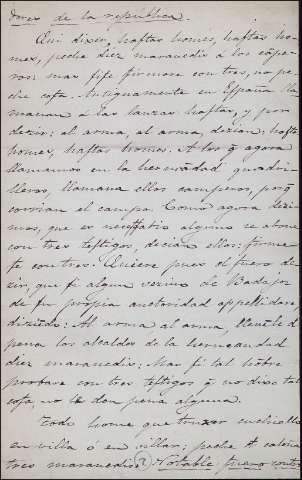 dores de la republica.
Qui dixer, haftas homes, haftas ho-
mes, peche diez maravedis a los cápe-
ros: mas fife firmare con tres, no pe-
che cosa. Antiguamente en España lla-
mavan a las lanzas haftas, y por
dezir: al arma, al arma, dezian, hafta
homes, haftas homes. A los q̃ agora
llamamos en la hermãdad quadri-
lleros, llamava ellos camperos, porq̃
corrian el campo. Como agora dezi-
mos, que es necessario alguno se abone
con tres testigos, decian ellos: firme
fe con tres. Quiere pues el fuero de-
zir, que fi algun vezino de Badajoz
de fu propia auctoridad appellidare
diziẽdo: Al arma al arma, llevẽle de
pena los alcaldes de la hermandad
diez maravedis: Mas fi tal hõbre
probare con tres testigos q̃ no dixo tal
cosa, no le den pena alguna.
Todo home que trouxer cuchiello
en villa ó en villar: peche
tres maravedis. Notable fuero contra